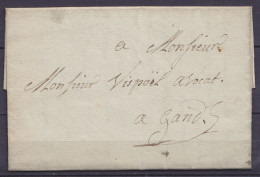 a Monsieur
Monsieur Vispoël avocat.
a Gand